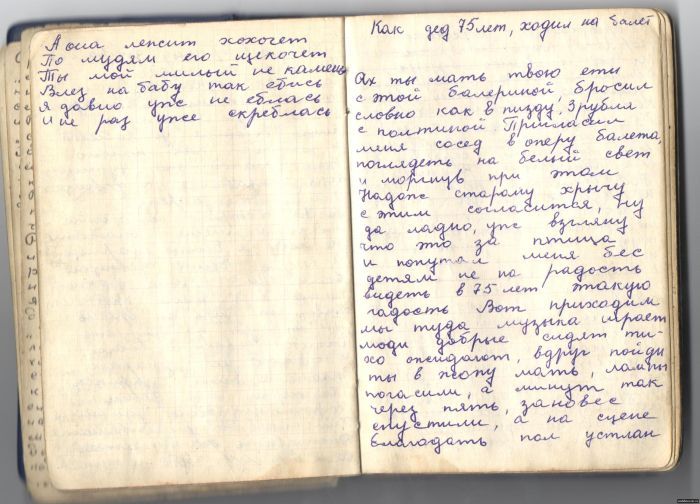 А она лепсит хохочет
По мудям его щекочет
Ты мой милый не камень
Влез на бабу так ебись
я давно упс не еблась
и не раз упсе скреблась
Как дед 75 лет, ходил на балет
Ах ты мать твою ети
с этой балериной бросил
словно как в пизду, 3 рубля
с полтиной. Пригласил
меня сосед в оперу балета,
поглядеть на белый свет
и моргнув при этом
Надопс старому хрычу
с этим согласится, ну
да ладно, упс взгляну
что это за птица
и попутал меня бес
детям не на радость
видеть в 75 лет этакую
гадость Вот приходим
мы туда музыка играет
люди добрые сидят ти-
хо опсидают, вдруг пойди
ты в жопу мать, лампы
погасили, а минут так
через пять, зановес
спустили, а на сцене
благодать пол устлан